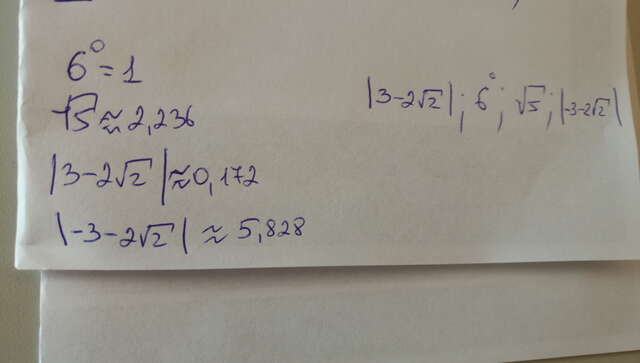 6° = 1
√5 ≈ 2,236
|3-2√2| ≈ 0,172
|-3-2√2| ≈ 5,828
|3-2√2|; 6°; √5; |-3-2√2|